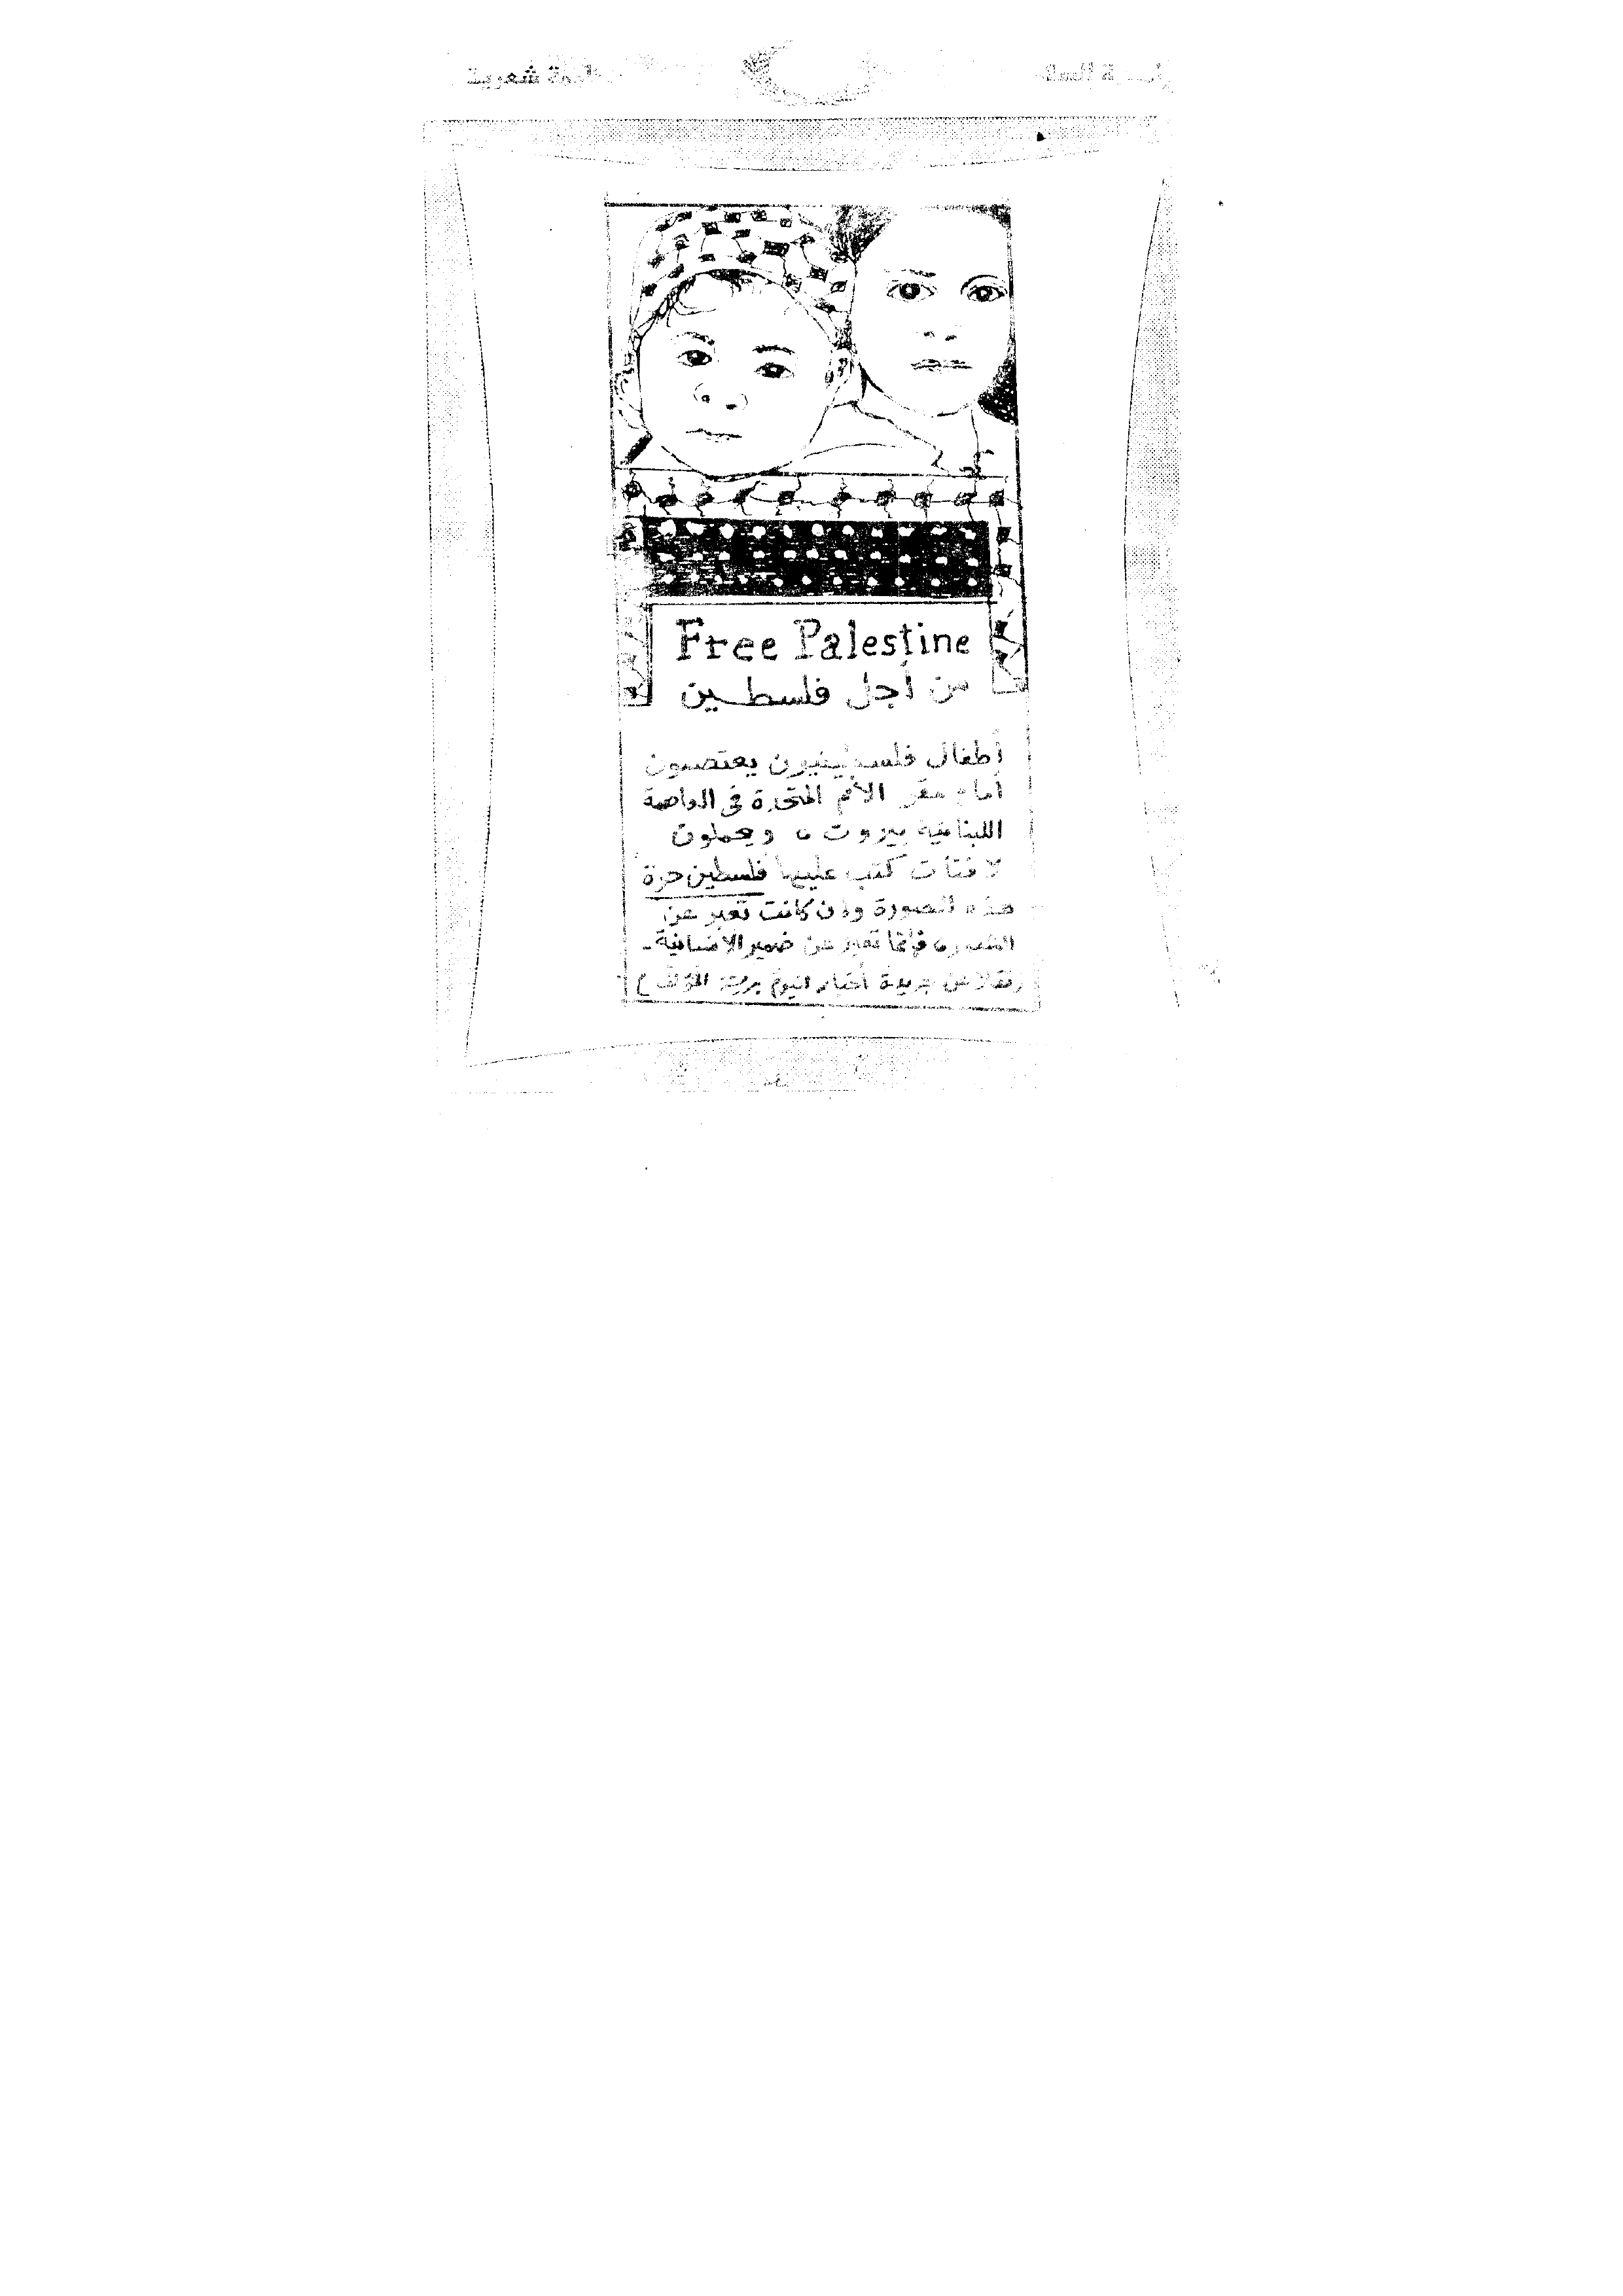 شعرية
Free Palestine
من أجل فلسطين
أطفال فلسطينيون يعتصمون
أمام مقر الأمم المتحدة في العاصمة
اللبنانية بيروت ، ويحملون
لافتات كتب عليها فلسطين حرة
هذه الصورة وإن كانت تعبر عن
فإنها تعبر عن ضمير الإنسانية -
نقلا عن جريدة أخبار اليوم بريشة المؤلف )